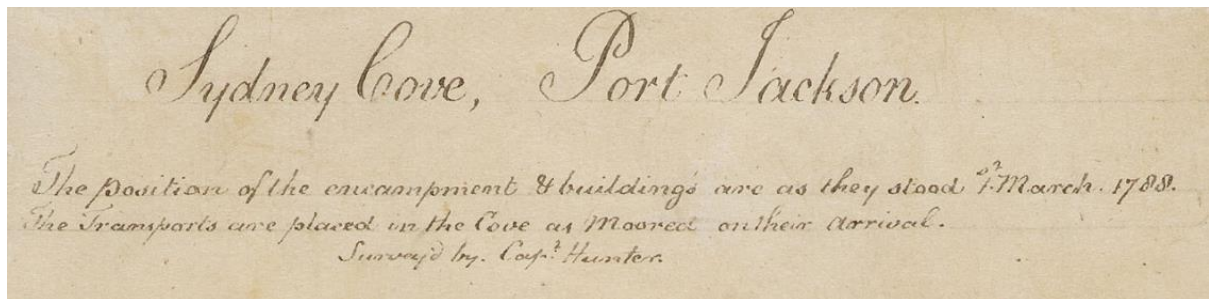 Sydney Cove, Port Jackson.
The position of the encampment & buildings are as they stood 1st March. 1788.
The Transports are placed in the Cove as Moored on their arrival.
Survey'd by. Capt. Hunter.